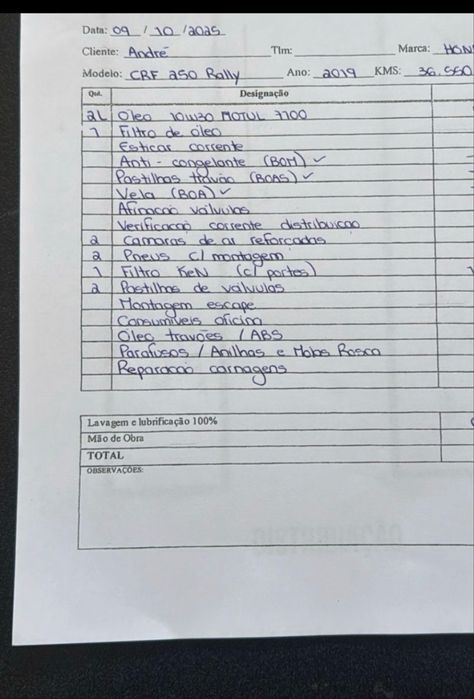 Data: 09 / 10 / 2025
Cliente: André Tlm: Marca: HON
Modelo: CRF 250 Rally Ano: 2019 KMS: 36.550
Qtd. Designação
2L Óleo 10W30 MOTUL 7100
1 Filtro de óleo
Esticar corrente
Anti-congelante (BOM) ✓
Pastilhas travão (BOAS) ✓
Vela (BOA) ✓
Afinação válvulas
Verificação corrente distribuição
2 Camaras de ar reforçadas
2 Pneus c/ montagem
1 Filtro KeN (c/ portes)
2 Pastilhas de valvulas
Montagem escape
Consumíveis oficina
Óleo travões / ABS
Parafusos / Anilhas e Molas Rosca
Reparação carnagens
Lavagem e lubrificação 100%
Mão de Obra
TOTAL
OBSERVAÇÕES: